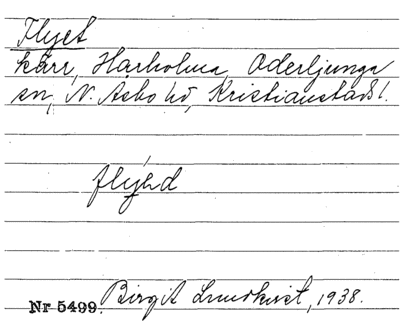 Flyet
kärr, Harholma, Oderljunga
sn, N. Åsbo hd, Kristianstads l.
flýəd
Nr 5499. Birgit Lundkvist, 1938.